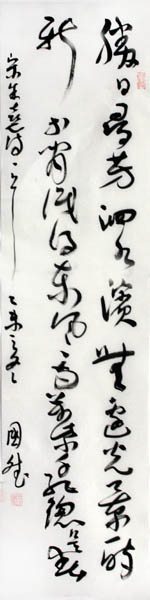 勝日尋芳泗水濱無邊光景一時
新等閒識得東風面萬紫千紅總是春
宋朱熹詩乙未國